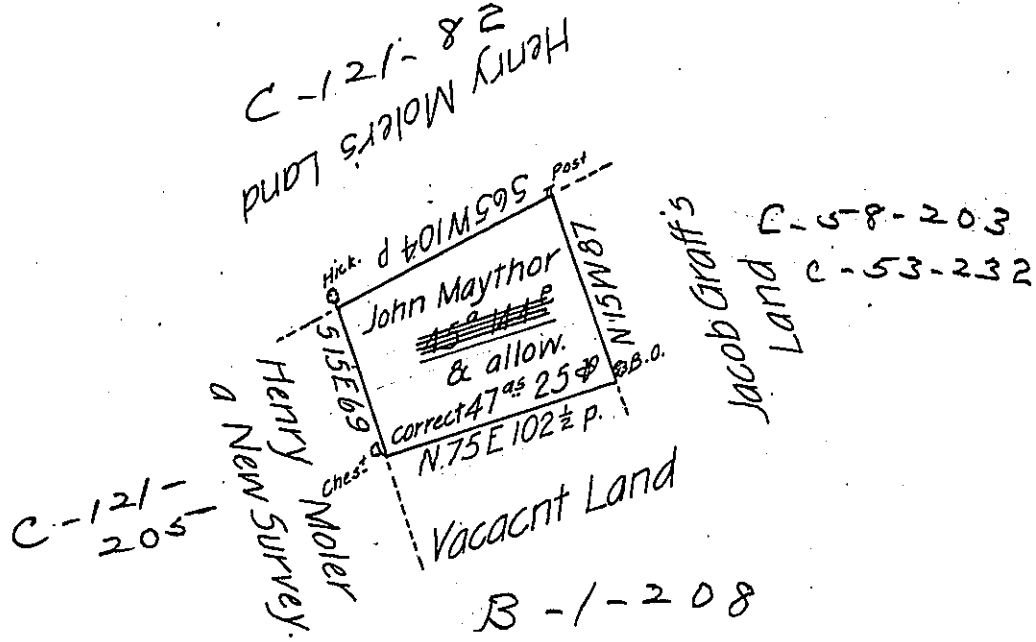 C-121-82
Henry Moler's Land
S65W104 p
Post
Hick.
John Maythor
& allow.
correct 47as 25p
N15W87
S15E69
Chest
B.O.
N.75E 102½ p.
Jacob Graff's
Land
C-58-203
C-53-232
Henry Moler
a New Survey.
C-121-
205-
Vacacnt Land
B-1-208